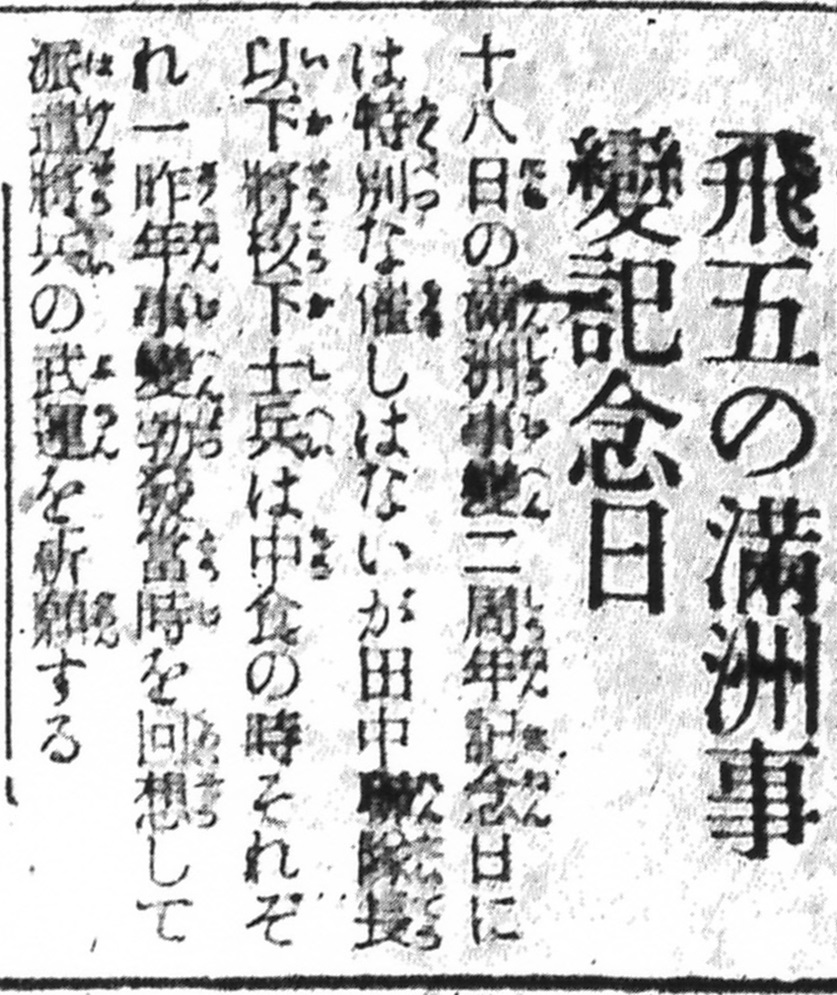 飛五の滿洲事
變記念日
十八日の滿洲事變二周年記念日に
は特別な催しはないが田中聯隊長
以下將校下士兵は中食の時それぞ
れ一昨年事變勃發當時を回想して
派遣將兵の武運を祈願する